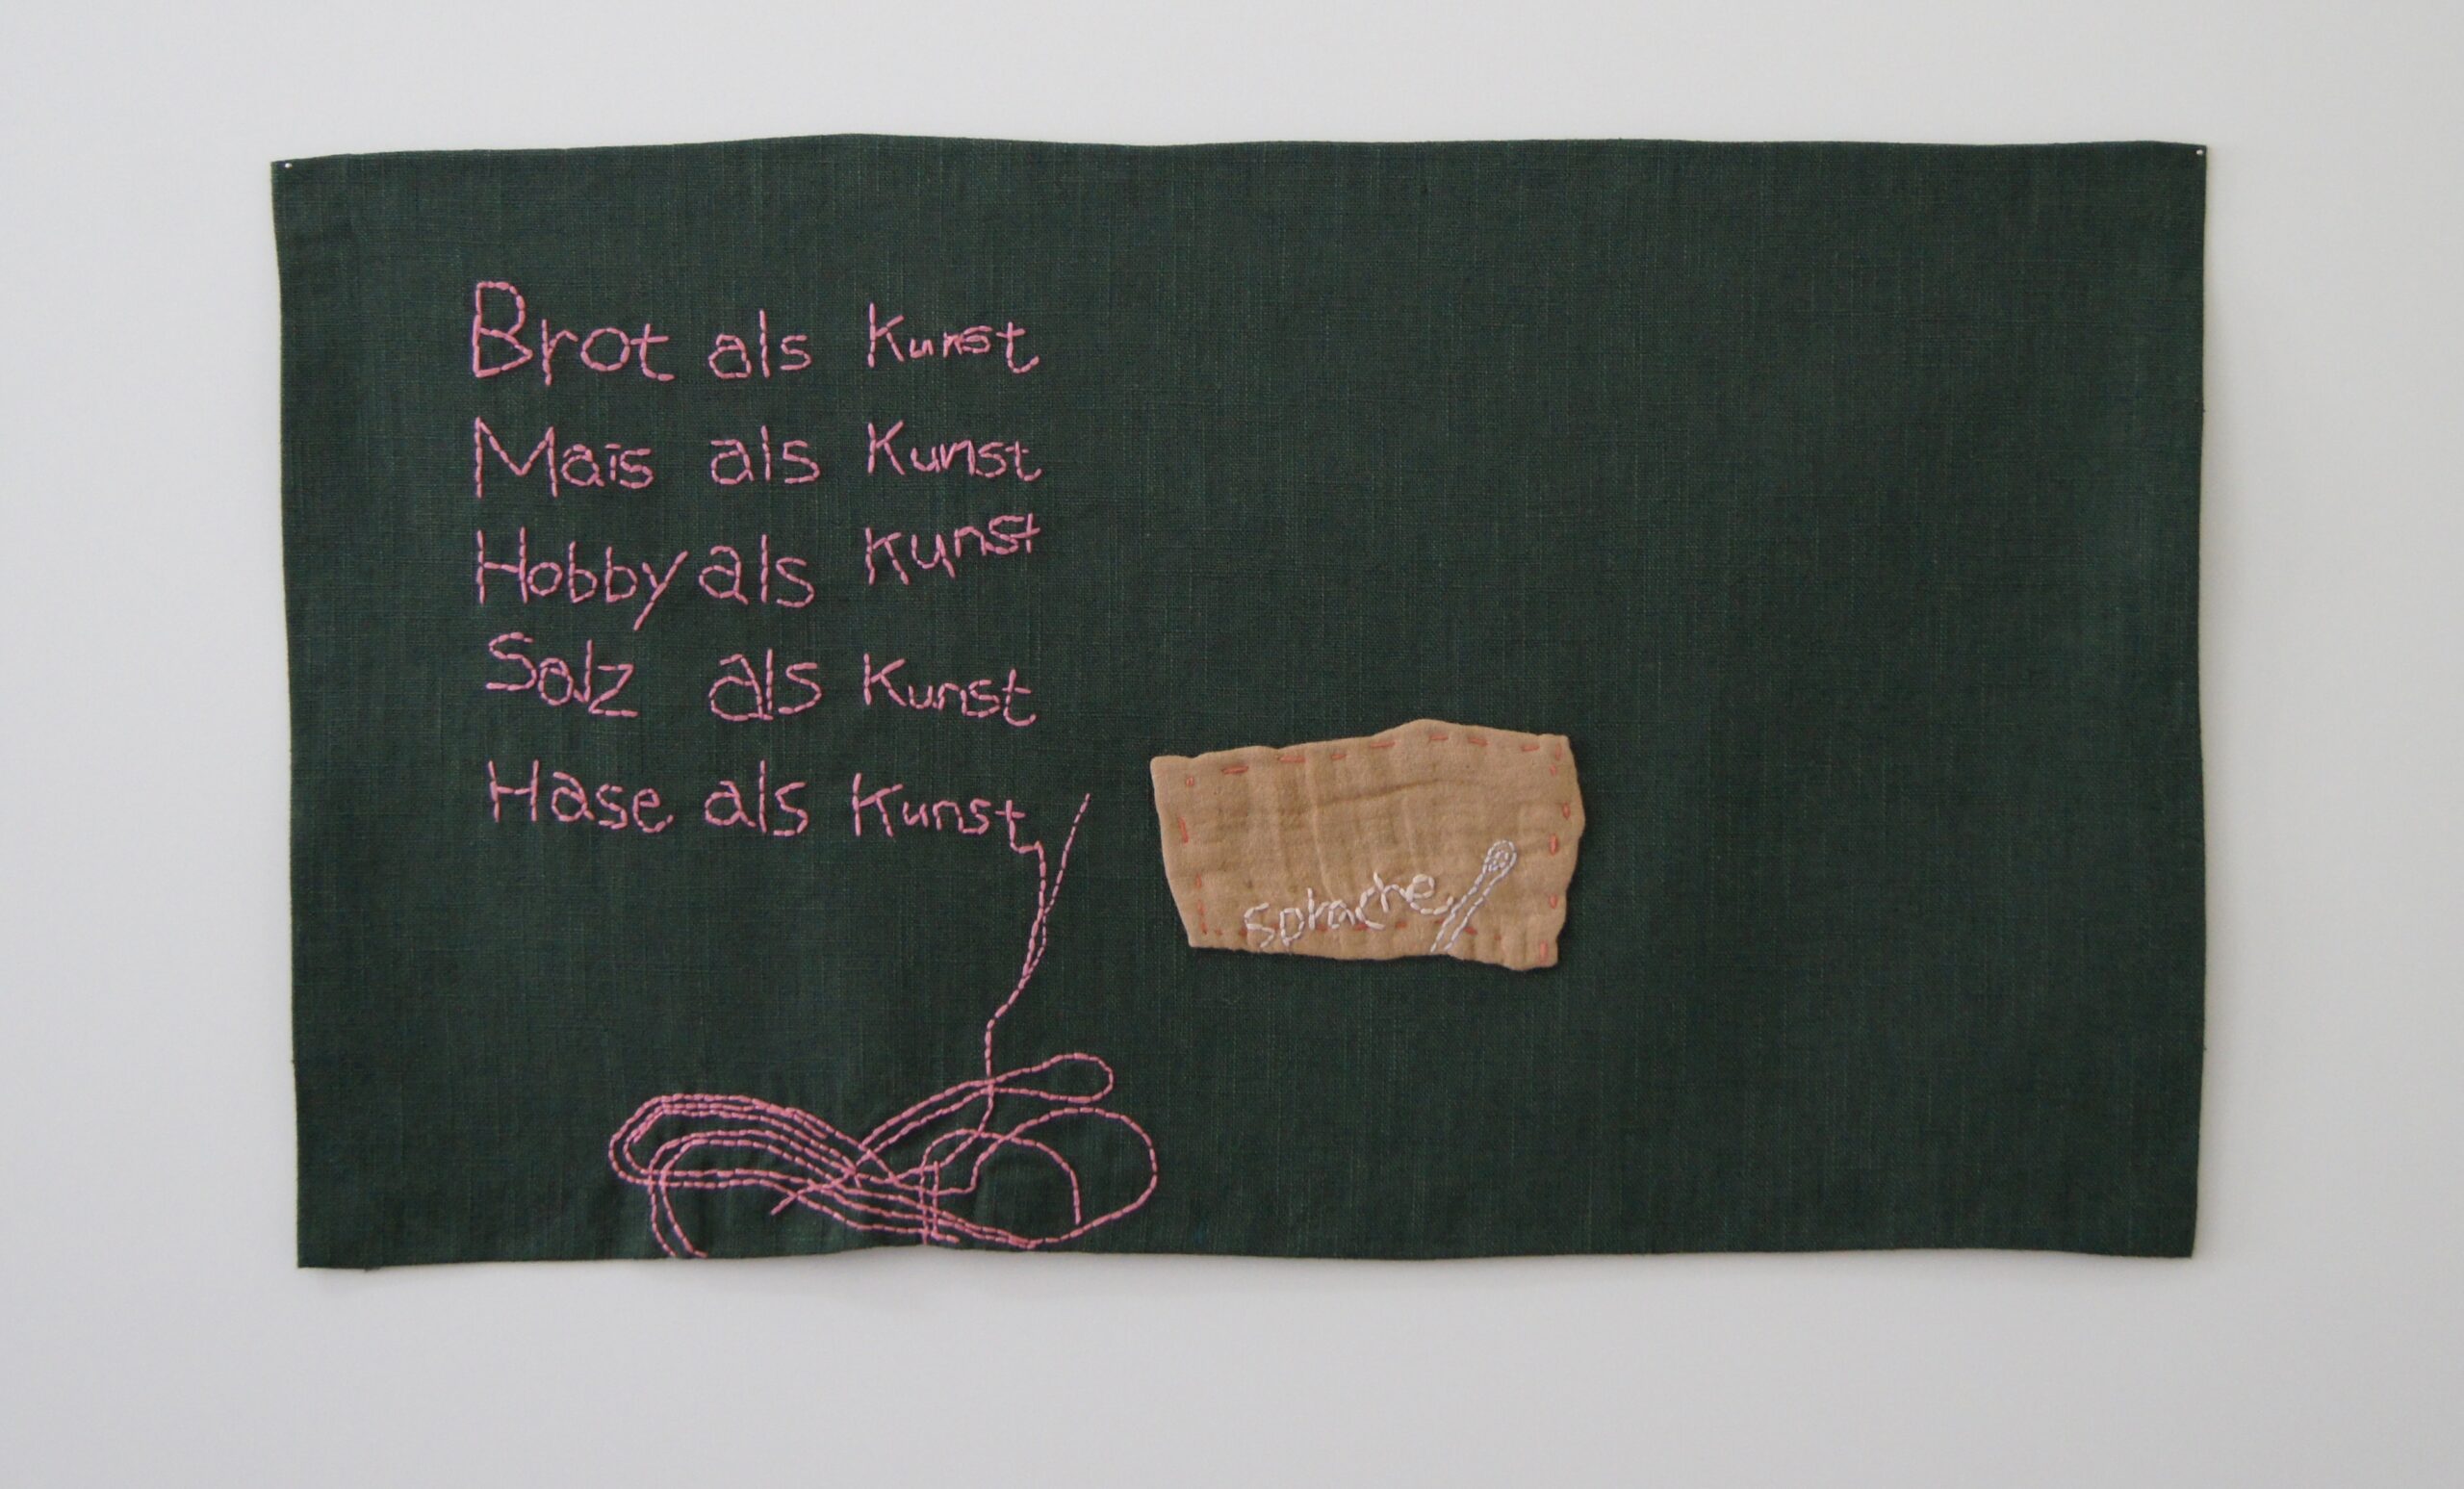 Brot als Kunst
Mais als Kunst
Hobby als Kunst
Salz als Kunst
Hase als Kunst
Sprache